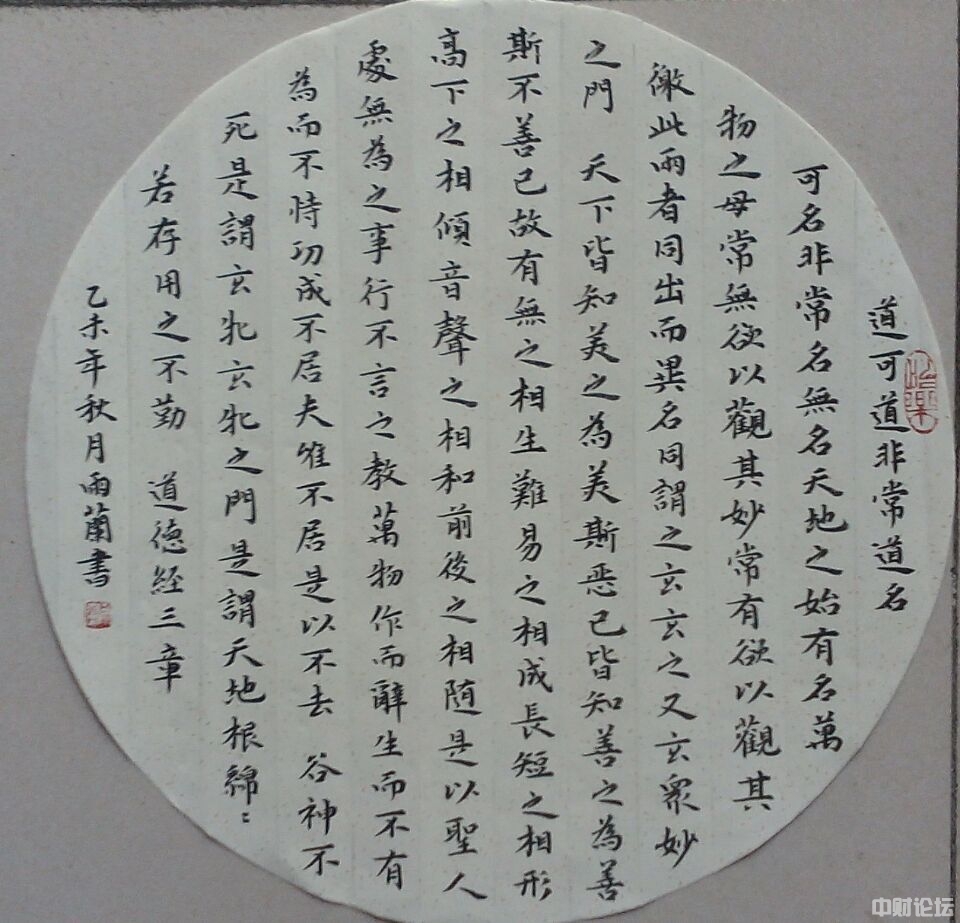 道可道非常道名
可名非常名無名天地之始有名萬
物之母常無欲以觀其妙常有欲以觀其
徼此兩者同出而異名同謂之玄玄之又玄眾妙
之門 天下皆知美之為美斯惡已皆知善之為善
斯不善已故有無之相生難易之相成長短之相形
高下之相傾音聲之相和前後之相隨是以聖人
處無為之事行不言之教萬物作而辭生而不有
為而不恃功成不居夫唯不居是以不去 谷神不
死是謂玄牝玄牝之門是謂天地根綿〻
若存用之不勤 道德經三章
乙未年秋月雨蘭書
中财论坛